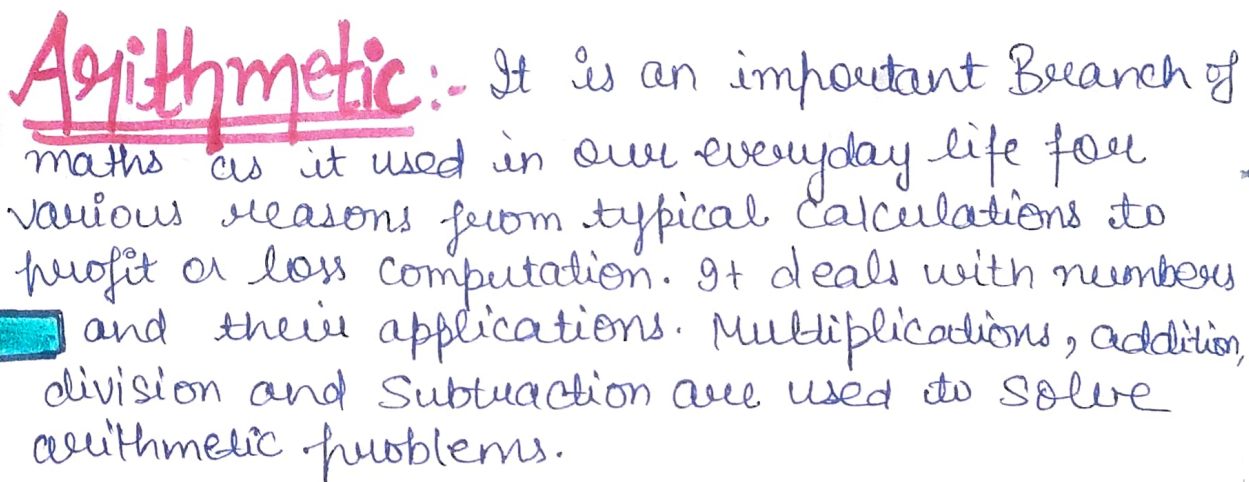 Arithmetic:- It is an important Branch of
maths as it used in our everyday life for
various reasons from typical calculations to
profit or loss computation. It deals with numbers
and their applications. Multiplications, addition,
division and Subtraction are used to solve
arithmetic problems.